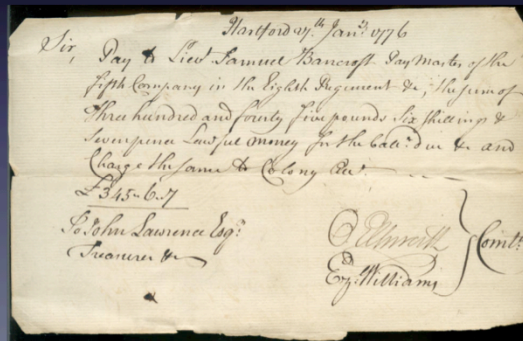 Hartford 17th Janry 1776
Sir,
Pay to Lieut Samuel Bancroft Pay Master of the
fifth Company in the Eighth Regiment &c, the sum of
three hundred and forty five pounds six shillings &
sevenpence Lawful money for the ballc due &c and
Charge the same to Colony
£345-6-7
To John Lawrence Esqr
Treasurer &c
O Ellsworth
Ez: Williams
Comtt